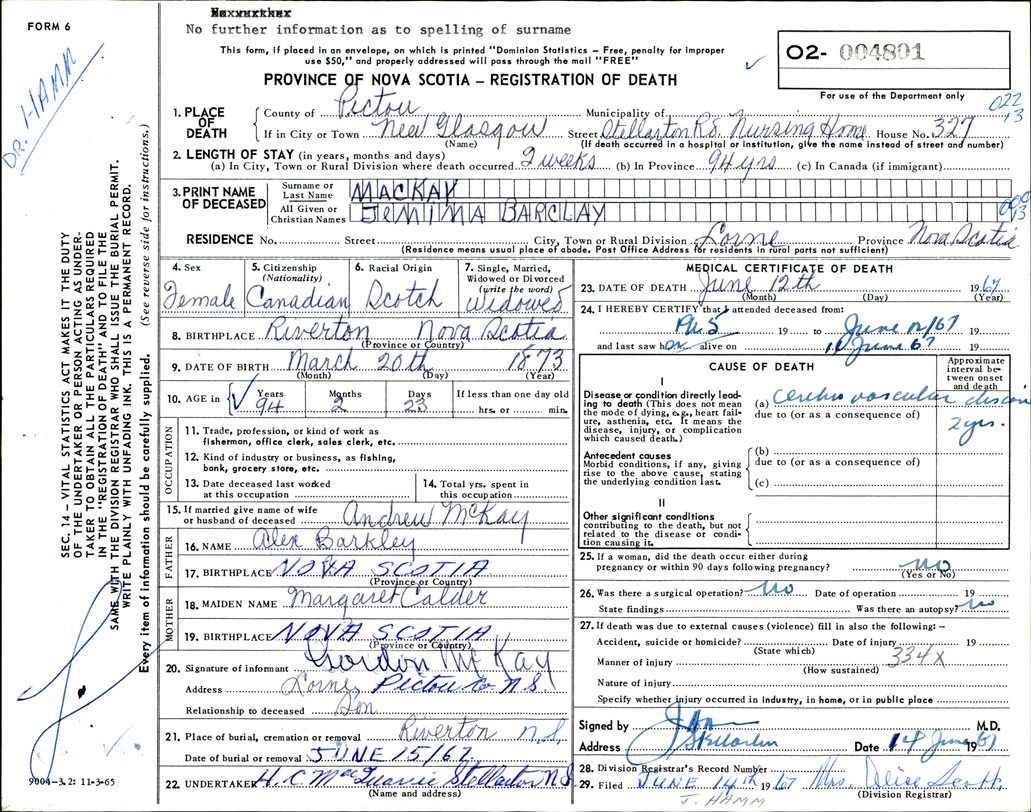 FORM 6
No further information as to spelling of surname
This form, if placed in an envelope, on which is printed "Dominion Statistics – Free, penalty for improper
use $50," and properly addressed will pass through the mail "FREE"
PROVINCE OF NOVA SCOTIA – REGISTRATION OF DEATH
O2- 004801
For use of the Department only
DR. HAMM
022
13
1. PLACE OF DEATH
County of Pictou Municipality of
If in City or Town New Glasgow Street Stellarton Rd. Nursing Home House No. 327
(Name) (If death occurred in a hospital or institution, give the name instead of street and number)
2. LENGTH OF STAY (in years, months and days)
(a) In City, Town or Rural Division where death occurred 2 weeks (b) In Province 94 yrs (c) In Canada (if immigrant)
3. PRINT NAME OF DECEASED
Surname or Last Name MACKAY
All Given or Christian Names JEMIMA BARCLAY
000
13
RESIDENCE No. Street City, Town or Rural Division Lorne Province Nova Scotia
(Residence means usual place of abode. Post Office Address for residents in rural parts not sufficient)
SEC. 14 – VITAL STATISTICS ACT MAKES IT THE DUTY
OF THE UNDERTAKER OR PERSON ACTING AS UNDER-
TAKER TO OBTAIN ALL THE PARTICULARS REQUIRED
IN THE "REGISTRATION OF DEATH" AND TO FILE THE
SAME WITH THE DIVISION REGISTRAR WHO SHALL ISSUE THE BURIAL PERMIT.
WRITE PLAINLY WITH UNFADING INK. THIS IS A PERMANENT RECORD.
Every item of information should be carefully supplied. (See reverse side for instructions.)
4. Sex Female
5. Citizenship (Nationality) Canadian
6. Racial Origin Scotch
7. Single, Married, Widowed or Divorced (write the word) Widowed
8. BIRTHPLACE Riverton Nova Scotia
(Province or Country)
9. DATE OF BIRTH March 20th 1873
(Month) (Day) (Year)
10. AGE in Years 94 Months 2 Days 23 If less than one day old hrs. or min.
OCCUPATION
11. Trade, profession, or kind of work as
fisherman, office clerk, sales clerk, etc.
12. Kind of industry or business, as fishing,
bank, grocery store, etc.
13. Date deceased last worked
at this occupation
14. Total yrs. spent in
this occupation
15. If married give name of wife
or husband of deceased Andrew McKay
FATHER
16. NAME Alex Barkley
17. BIRTHPLACE NOVA SCOTIA
(Province or Country)
MOTHER
18. MAIDEN NAME Margaret Calder
19. BIRTHPLACE NOVA SCOTIA
(Province or Country)
20. Signature of informant Gordon McKay
Address Lorne, Pictou Co N.S.
Relationship to deceased Son
21. Place of burial, cremation or removal Riverton N.S.
Date of burial or removal JUNE 15/67
22. UNDERTAKER H. C. MacQuarrie Stellarton NS
(Name and address)
9004-3.2: 11-3-65
MEDICAL CERTIFICATE OF DEATH
23. DATE OF DEATH June 12th 1967
(Month) (Day) (Year)
24. I HEREBY CERTIFY that I attended deceased from:
19 to June 12/67 19
and last saw alive on June 67 19
CAUSE OF DEATH
Approximate interval between onset and death
I
Disease or condition directly leading to death (This does not mean the mode of dying, e.g., heart failure, asthenia, etc. It means the disease, injury, or complication which caused death.)
(a) cerebro vascular disease
due to (or as a consequence of) 2 yrs.
Antecedent causes
Morbid conditions, if any, giving rise to the above cause, stating the underlying condition last.
(b)
due to (or as a consequence of)
(c)
II
Other significant conditions
contributing to the death, but not related to the disease or condition causing it.
25. If a woman, did the death occur either during
pregnancy or within 90 days following pregnancy? no
(Yes or No)
26. Was there a surgical operation? no Date of operation 19
State findings Was there an autopsy? no
27. If death was due to external causes (violence) fill in also the following: –
Accident, suicide or homicide? Date of injury 19
(State which) 334X
Manner of injury
(How sustained)
Nature of injury
Specify whether injury occurred in industry, in home, or in public place
Signed by M.D.
Address Stellarton Date 14 June 1967
28. Division Registrar's Record Number
29. Filed JUNE 14th 1967 Mrs. Alice Scott
(Division Registrar)
J. HAMM